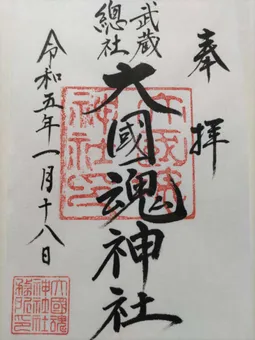 奉拝
武蔵
總社
大國魂神社
令和五年一月十八日
大國魂
神社印
大國魂
神社社
務所印